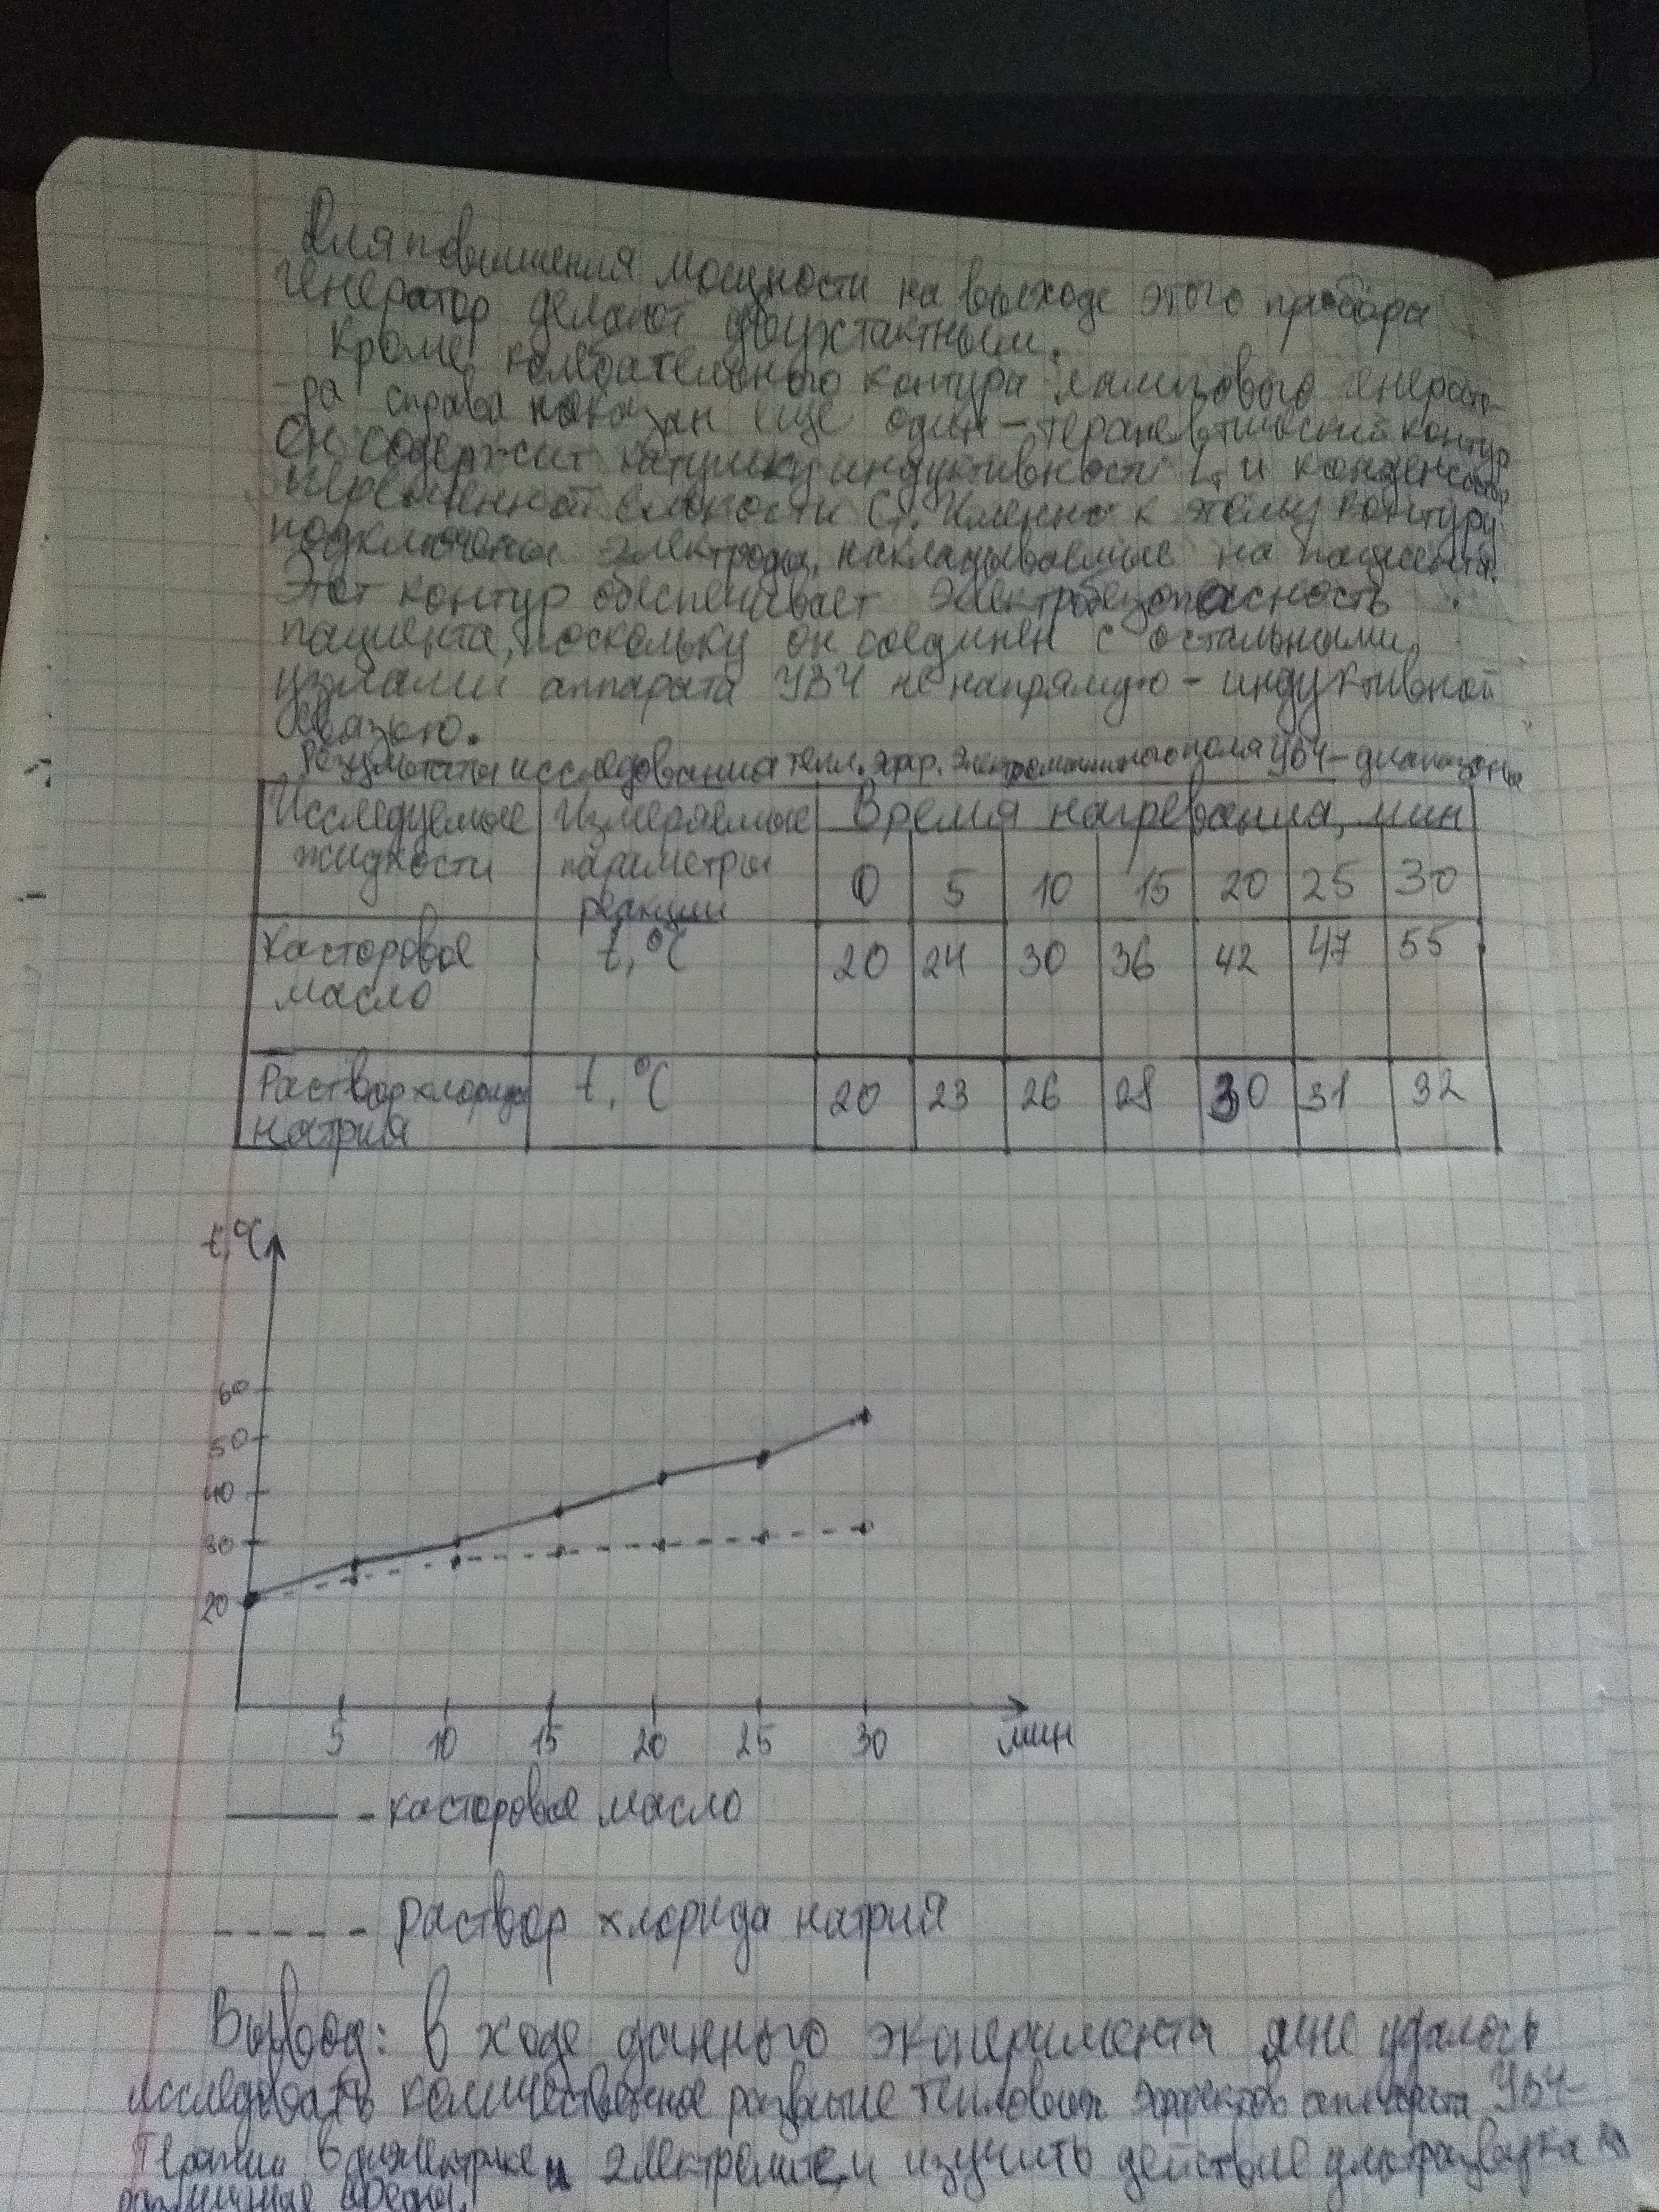 Для повышения мощности на выходе этого прибора
генератор делают двухтактным.
Кроме колебательного контура лампового генерато-
-ра справа показан еще один - терапевтический контур
Он содержит катушку индуктивности Lт и конденсатор
переменной емкости Cт. Именно к этому контуру
подключены электроды, накладываемые на пациента.
Этот контур обеспечивает электробезопасность
пациента, поскольку он соединен с остальными
узлами аппарата УВЧ не напрямую - индуктивной
связью.
Результаты исследования тепл. эфф. электромагнитного поля УВЧ-диапазона
Исследуемые жидкости
Измеряемые параметры реакции
Время нагревания, мин
0 5 10 15 20 25 30
Касторовое масло
t, °C 20 24 30 36 42 47 55
Раствор хлорида натрия
t, °C 20 23 26 28 30 31 32
t, °C
60
50
40
30
20
5 10 15 20 25 30 мин
——— - касторовое масло
- - - - - раствор хлорида натрия
Вывод: в ходе данного эксперимента мне удалось
исследовать количественное тепловых эффектов аппарата УВЧ-
терапии в диэлектрике и электролите и изучить действие ультразвука
различные